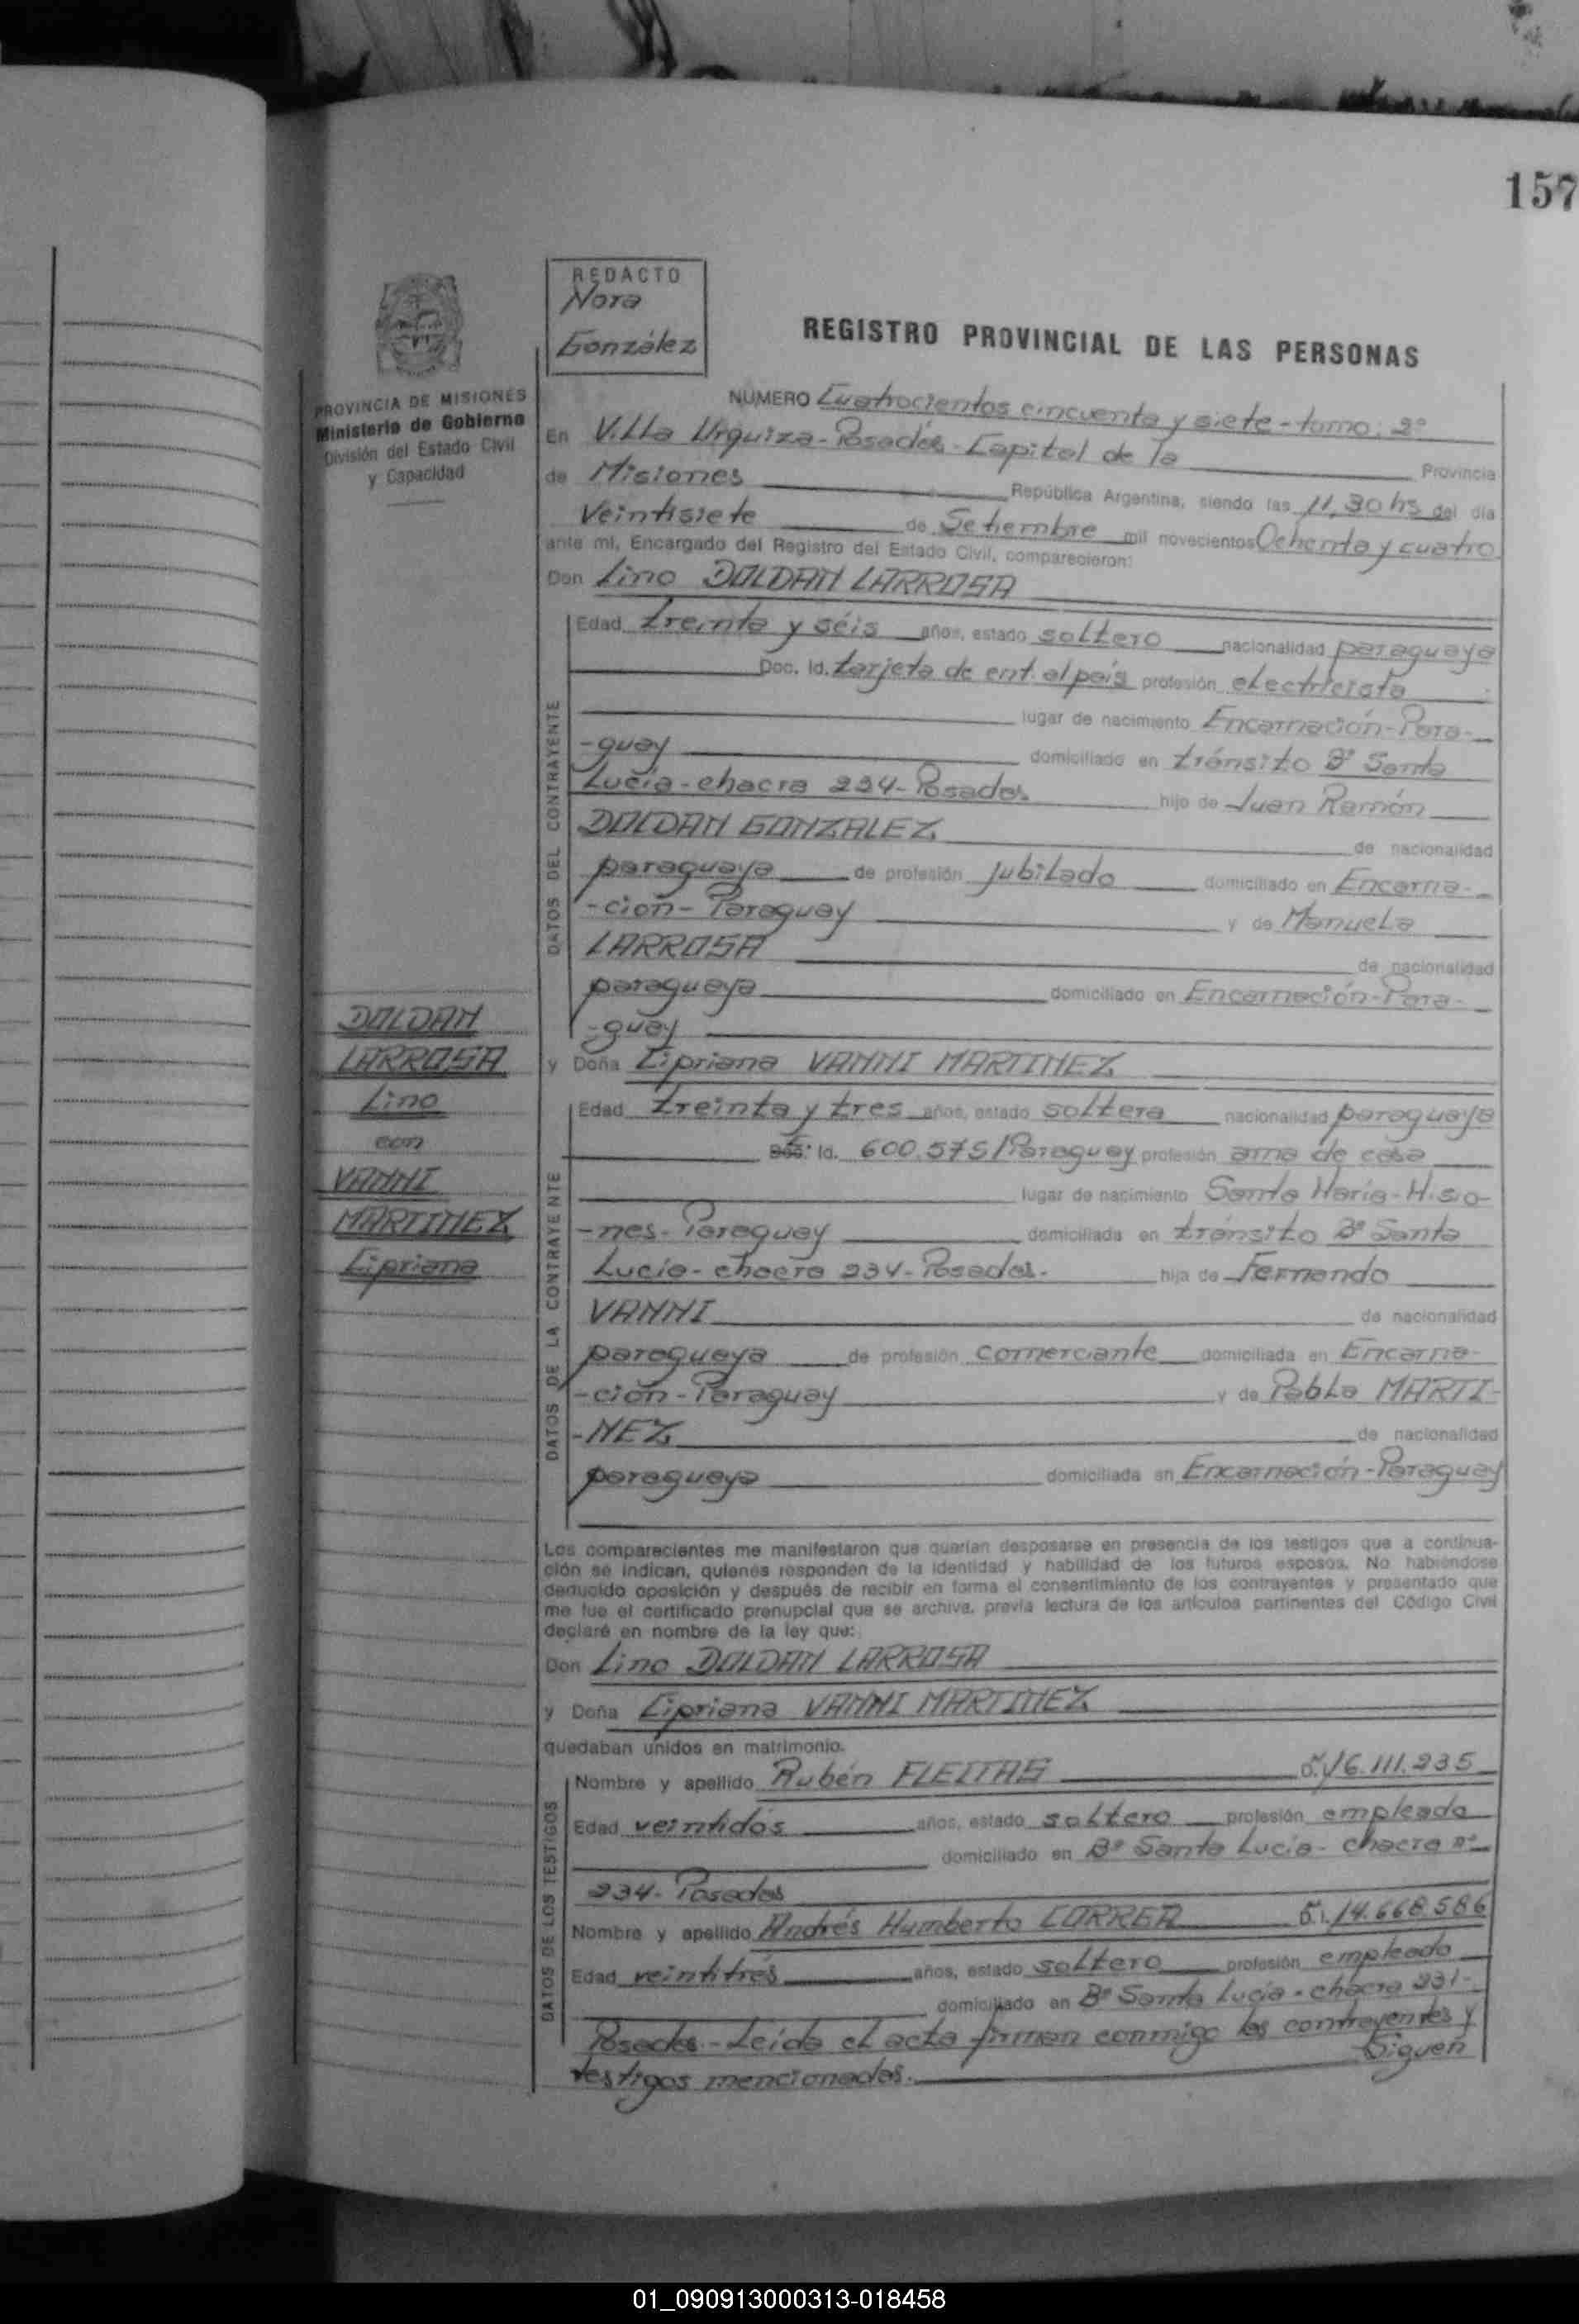 157
REDACTO
Nora
González
REGISTRO PROVINCIAL DE LAS PERSONAS
PROVINCIA DE MISIONES
Ministerio de Gobierno
División del Estado Civil
y Capacidad
NUMERO Cuatrocientos cincuenta y siete - tomo: 2º
En Villa Urquiza - Posadas - Capital de la Provincia
de Misiones República Argentina, siendo las 11,30 hs del día
Veintisiete de Setiembre mil novecientos Ochenta y cuatro
ante mí, Encargado del Registro del Estado Civil, comparecieron:
Don Lino DOLDAN LARROSA
DATOS DEL CONTRAYENTE
Edad treinta y séis años, estado soltero nacionalidad paraguaya
Doc. Id. tarjeta de ent. al país profesión electricista
lugar de nacimiento Encarnación - Para-
-guay domiciliado en tránsito Bº Santa
Lucía - chacra 234 - Posadas. hijo de Juan Ramón
DOLDAN GONZALEZ de nacionalidad
paraguaya de profesión jubilado domiciliado en Encarna-
-ción - Paraguay y de Manuela
LARROSA de nacionalidad
paraguaya domiciliado en Encarnación - Para-
-guay
y Doña Cipriana VANNI MARTINEZ
DATOS DE LA CONTRAYENTE
Edad treinta y tres años, estado soltera nacionalidad paraguaya
Id. 600.575/Paraguay profesión ama de casa
lugar de nacimiento Santa María - Misio-
-nes - Paraguay domiciliada en tránsito Bº Santa
Lucía - chacra 234 - Posadas. hija de Fernando
VANNI de nacionalidad
paraguaya de profesión comerciante domiciliada en Encarna-
-ción - Paraguay y de Pabla MARTI-
-NEZ de nacionalidad
paraguaya domiciliada en Encarnación - Paraguay
DOLDAN
LARROSA
Lino
con
VANNI
MARTINEZ
Cipriana
Los comparecientes me manifestaron que querían desposarse en presencia de los testigos que a continua-
ción se indican, quienes responden de la identidad y habilidad de los futuros esposos. No habiéndose
deducido oposición y después de recibir en forma el consentimiento de los contrayentes y presentado que
me fue el certificado prenupcial que se archiva, previa lectura de los artículos pertinentes del Código Civil
declaré en nombre de la ley que:
Don Lino DOLDAN LARROSA
y Doña Cipriana VANNI MARTINEZ
quedaban unidos en matrimonio.
DATOS DE LOS TESTIGOS
Nombre y apellido Rubén FLEITAS 16.111.235
Edad veintidós años, estado soltero profesión empleado
domiciliado en Bº Santa Lucía - chacra nº
234 - Posadas
Nombre y apellido Andrés Humberto CORREA 14.668.586
Edad veintitrés años, estado soltero profesión empleado
domiciliado en Bº Santa Lucía - chacra 231 -
Posadas - Leída el acta firman conmigo los contrayentes y
testigos mencionados. Siguen
01_090913000313-018458